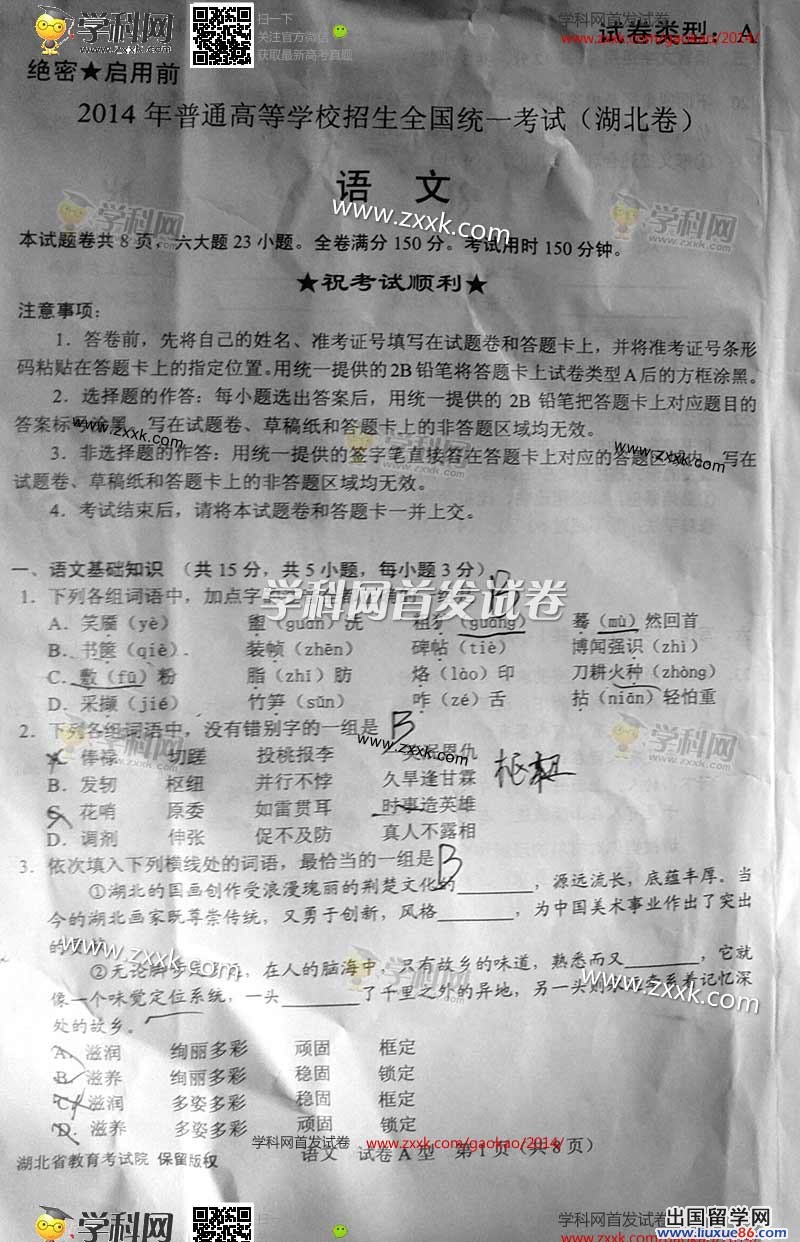 学科网 扫一下 学科网首发试卷
www.zxxk.com 关注官方微信 www.zxxk.com/gaokao/2014/
获取最新高考真题 试卷类型：A
绝密★启用前
2014 年普通高等学校招生全国统一考试（湖北卷）
语 文
学科网
www.zxxk.com
本试题卷共 8 页，六大题 23 小题。全卷满分 150 分。考试用时 150 分钟。
★祝考试顺利★
注意事项：
1．答卷前，先将自己的姓名、准考证号填写在试题卷和答题卡上，并将准考证号条形
码粘贴在答题卡上的指定位置。用统一提供的 2B 铅笔将答题卡上试卷类型 A 后的方框涂黑。
2．选择题的作答：每小题选出答案后，用统一提供的 2B 铅笔把答题卡上对应题目的
答案标号涂黑。写在试题卷、草稿纸和答题卡上的非答题区域均无效。
www.zxxk.com 学科网 www.zxxk.com
3．非选择题的作答：用统一提供的签字笔直接答在答题卡上对应的答题区域内。写在
试题卷、草稿纸和答题卡上的非答题区域均无效。
4．考试结束后，请将本试题卷和答题卡一并上交。
一、语文基础知识 （共 15 分，共 5 小题，每小题 3 分）
1．下列各组词语中，加点字 B
学科网首发试卷
A．笑靥（yè） 盥（guàn）洗 粗犷（guǎng） 蓦（mù）然回首
B．书箧（qiè） 装帧（zhēn） 碑帖（tiè） 博闻强识（zhì）
C．敷（fū）粉 脂（zhī）肪 烙（lào）印 刀耕火种（zhòng）
D．采撷（jié） 竹笋（sǔn） 咋（zé）舌 拈（niān）轻怕重
2．下列各组词语中，没有错别字的一组是 B
学科网
www.zxxk.com
A．俸禄 切蹉 投桃报李 恩仇
B．发轫 枢纽 并行不悖 久旱逢甘霖
C．花哨 原委 如雷贯耳 时事造英雄
D．调剂 伸张 促不及防 真人不露相
3．依次填入下列横线处的词语，最恰当的一组是 B
①湖北的国画创作受浪漫瑰丽的荆楚文化的________，源远流长，底蕴丰厚。当
今的湖北画家既尊崇传统，又勇于创新，风格________，为中国美术事业作出了突出
的
www.zxxk.com 学科网 www.zxxk.com
②无论脚步 ，在人的脑海中，只有故乡的味道，熟悉而又________，它就
像一个味觉定位系统，一头________了千里之外的异地，另一头则 系着记忆深
处的故乡。
A．滋润 绚丽多彩 顽固 框定
B．滋养 绚丽多彩 稳固 锁定
C．滋润 多姿多彩 稳固 框定
D．滋养 多姿多彩 顽固 锁定
学科网首发试卷 www.zxxk.com/gaokao/2014/
湖北省教育考试院 保留版权 语文 试卷 A 型 第 1 页（共 8 页）
学科网 扫一下 学科网首发试卷
www.zxxk.com 关注官方微信
出国留学网
www.liuxue86.com